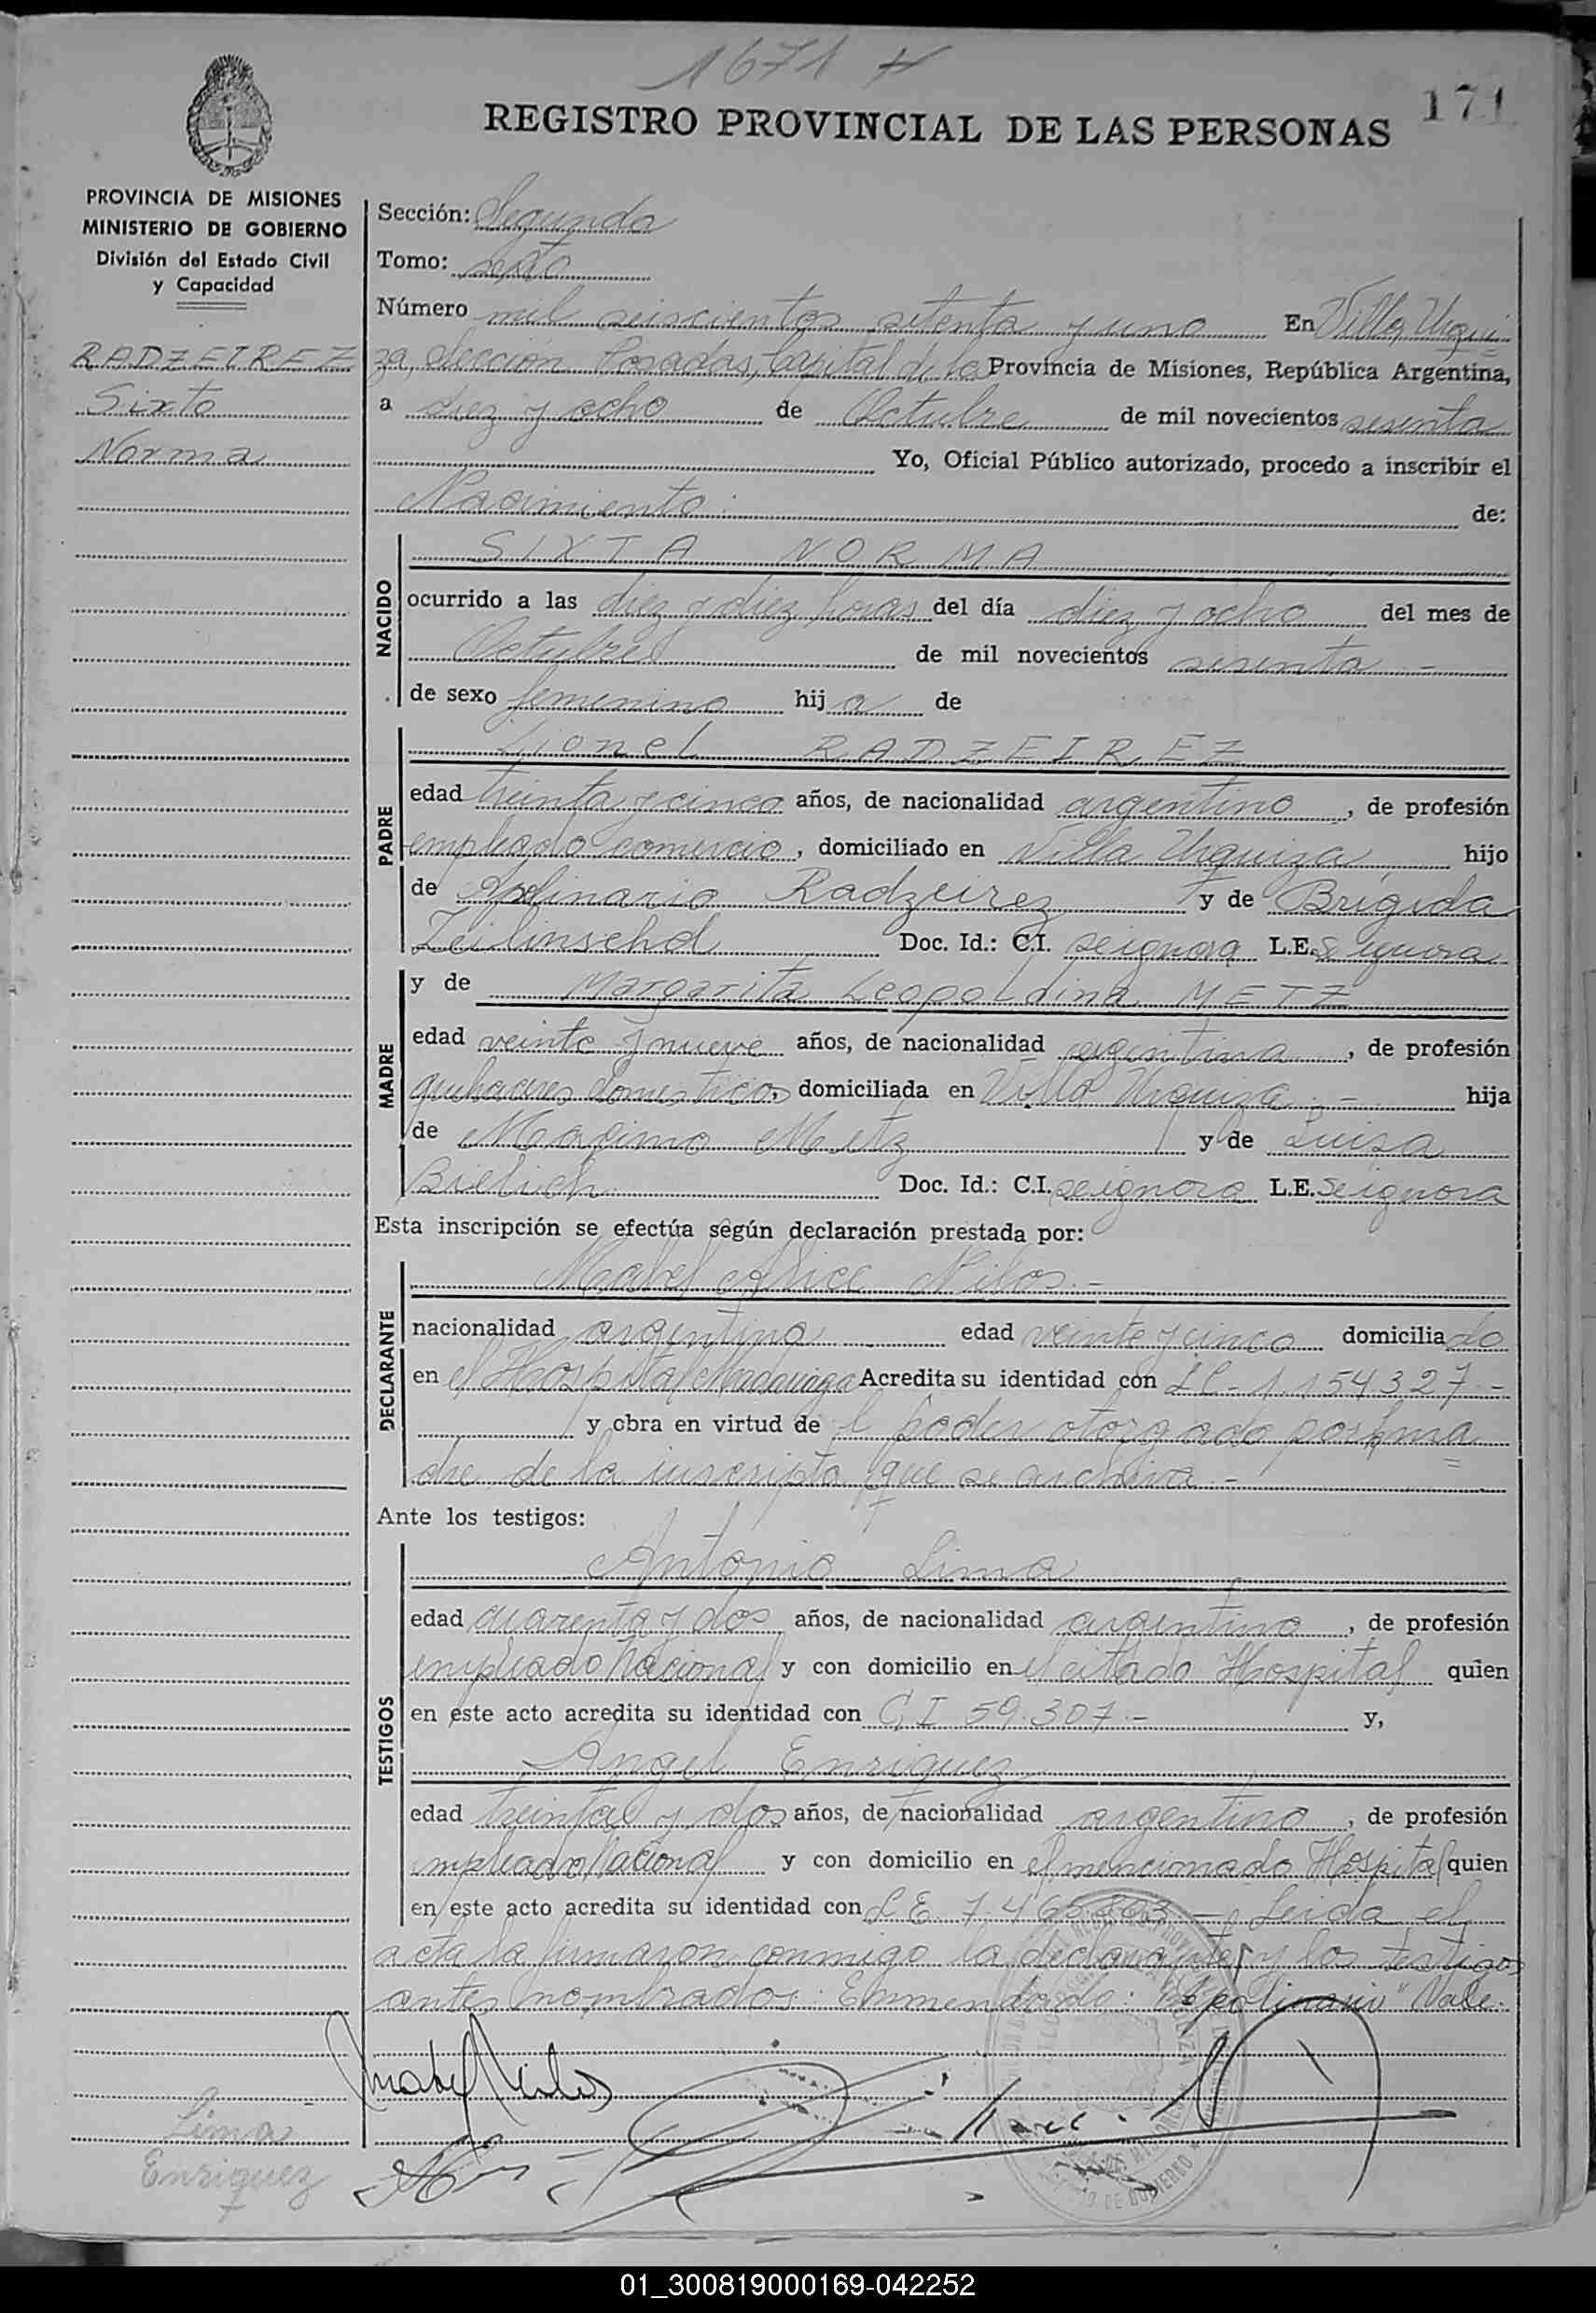 1671
171
REGISTRO PROVINCIAL DE LAS PERSONAS
PROVINCIA DE MISIONES
MINISTERIO DE GOBIERNO
División del Estado Civil
y Capacidad
RADZEIREZ
Sixto
Norma
Sección: Segunda
Tomo: sexto
Número mil seiscientos setenta y uno En Villa Urqui
za, Sección Posadas, Capital de la Provincia de Misiones, República Argentina,
a diez y ocho de Octubre de mil novecientos sesenta
Yo, Oficial Público autorizado, procedo a inscribir el
Nacimiento de:
NACIDO
SIXTA NORMA
ocurrido a las diez y diez horas del día diez y ocho del mes de
Octubre de mil novecientos sesenta -
de sexo femenino hij a de
PADRE
Lionel RADZEIREZ
edad treinta y cinco años, de nacionalidad argentino, de profesión
empleado comercio, domiciliado en Villa Urquiza hijo
de Apolinario Radzeirez y de Brígida
Zeilinschd Doc. Id.: C.I. se ignora L.E. Se ignora
MADRE
y de Margarita Leopoldina METZ
edad veinte y nueve años, de nacionalidad argentina, de profesión
quehaceres domesticos, domiciliada en Villa Urquiza - hija
de Maximo Metz y de Luisa
Bielich Doc. Id.: C.I. se ignora L.E. Se ignora
Esta inscripción se efectúa según declaración prestada por:
DECLARANTE
Mabel Alice Nilos.-
nacionalidad argentina edad veinte y cinco domicilia do
en el Hospital Madariaga Acredita su identidad con LC-1.154.327-
y obra en virtud de l poder otorgado por la ma
dre de la inscripta que se archiva.-
Ante los testigos:
TESTIGOS
Antonio Lima
edad cuarenta y dos años, de nacionalidad argentino, de profesión
empleado Nacional y con domicilio en el citado Hospital quien
en este acto acredita su identidad con C I 59.307.- y,
Angel Enriquez
edad treinta y dos años, de nacionalidad argentino, de profesión
empleado Nacional y con domicilio en el mencionado Hospital quien
en este acto acredita su identidad con L E 7.465.863 - Leida el
acta la firmaron conmigo la declarante y los testigos
antes nombrados. Enmendado: "Apolinario" Vale.
Lima
Enriquez
01_300819000169-042252